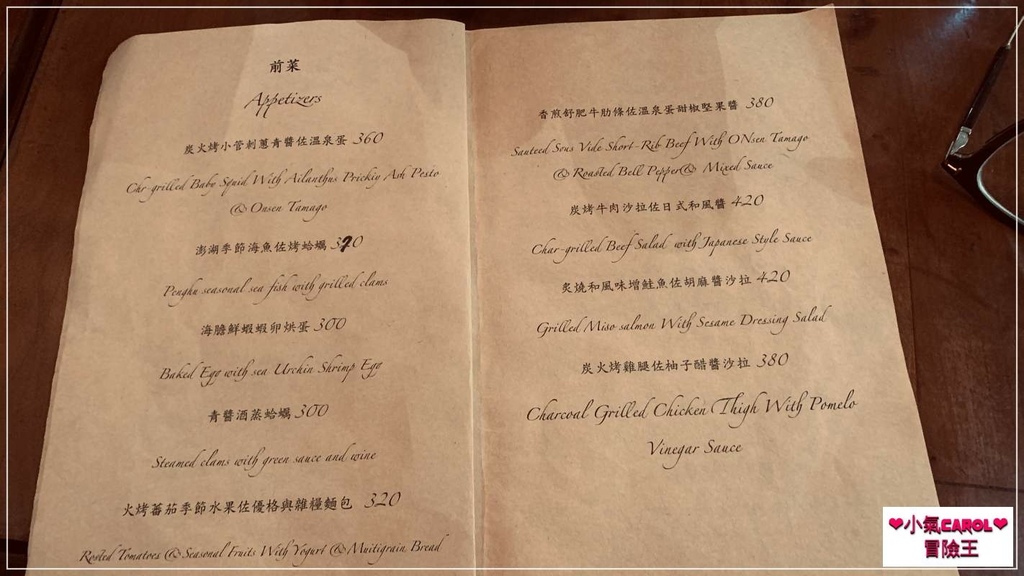 前菜
Appetizers
炭火烤小管刺蔥青醬佐溫泉蛋 360
Chr-grilled Baby Squid With Ailanthus Prickiy Ash Pesto
& Onsen Tamago
澎湖季節海魚佐烤蛤蠣 370
Penghu seasonal sea fish with grilled clams
海膽鮮蝦蝦卵烘蛋 300
Baked Egg with sea Urchin Shrimp Egg
青醬酒蒸蛤蠣 300
Steamed clams with green sauce and wine
火烤蕃茄季節水果佐優格與雜糧麵包 320
Rosted Tomatoes & Seasonal Fruits With Yogurt & Muitigrain Bread
香煎舒肥牛肋條佐溫泉蛋甜椒堅果醬 380
Sauteed Sous Vide Short-Rib Beef With ONsen Tamago
& Roasted Bell Pepper& Mixed Sauce
炭烤牛肉沙拉佐日式和風醬 420
Char-grilled Beef Salad with Japanese Style Sauce
炙燒和風味增鮭魚佐胡麻醬沙拉 420
Grilled Miso salmon With Sesame Dressing Salad
炭火烤雞腿佐柚子醋醬沙拉 380
Charcoal Grilled Chicken Thigh With Pomelo
Vinegar Sauce
❤小氣CAROL❤
冒險王